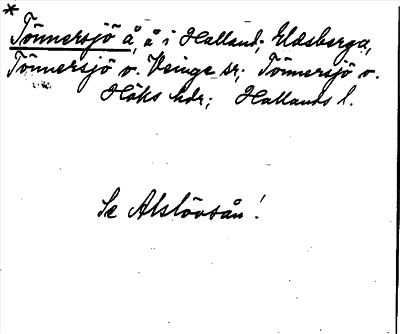 *
Tönnersjö å, å i Halland; Eldsberga,
Tönnersjö o. Veinge sr; Tönnersjö o.
Höks hdr; Hallands l.
Se Alslövsån!